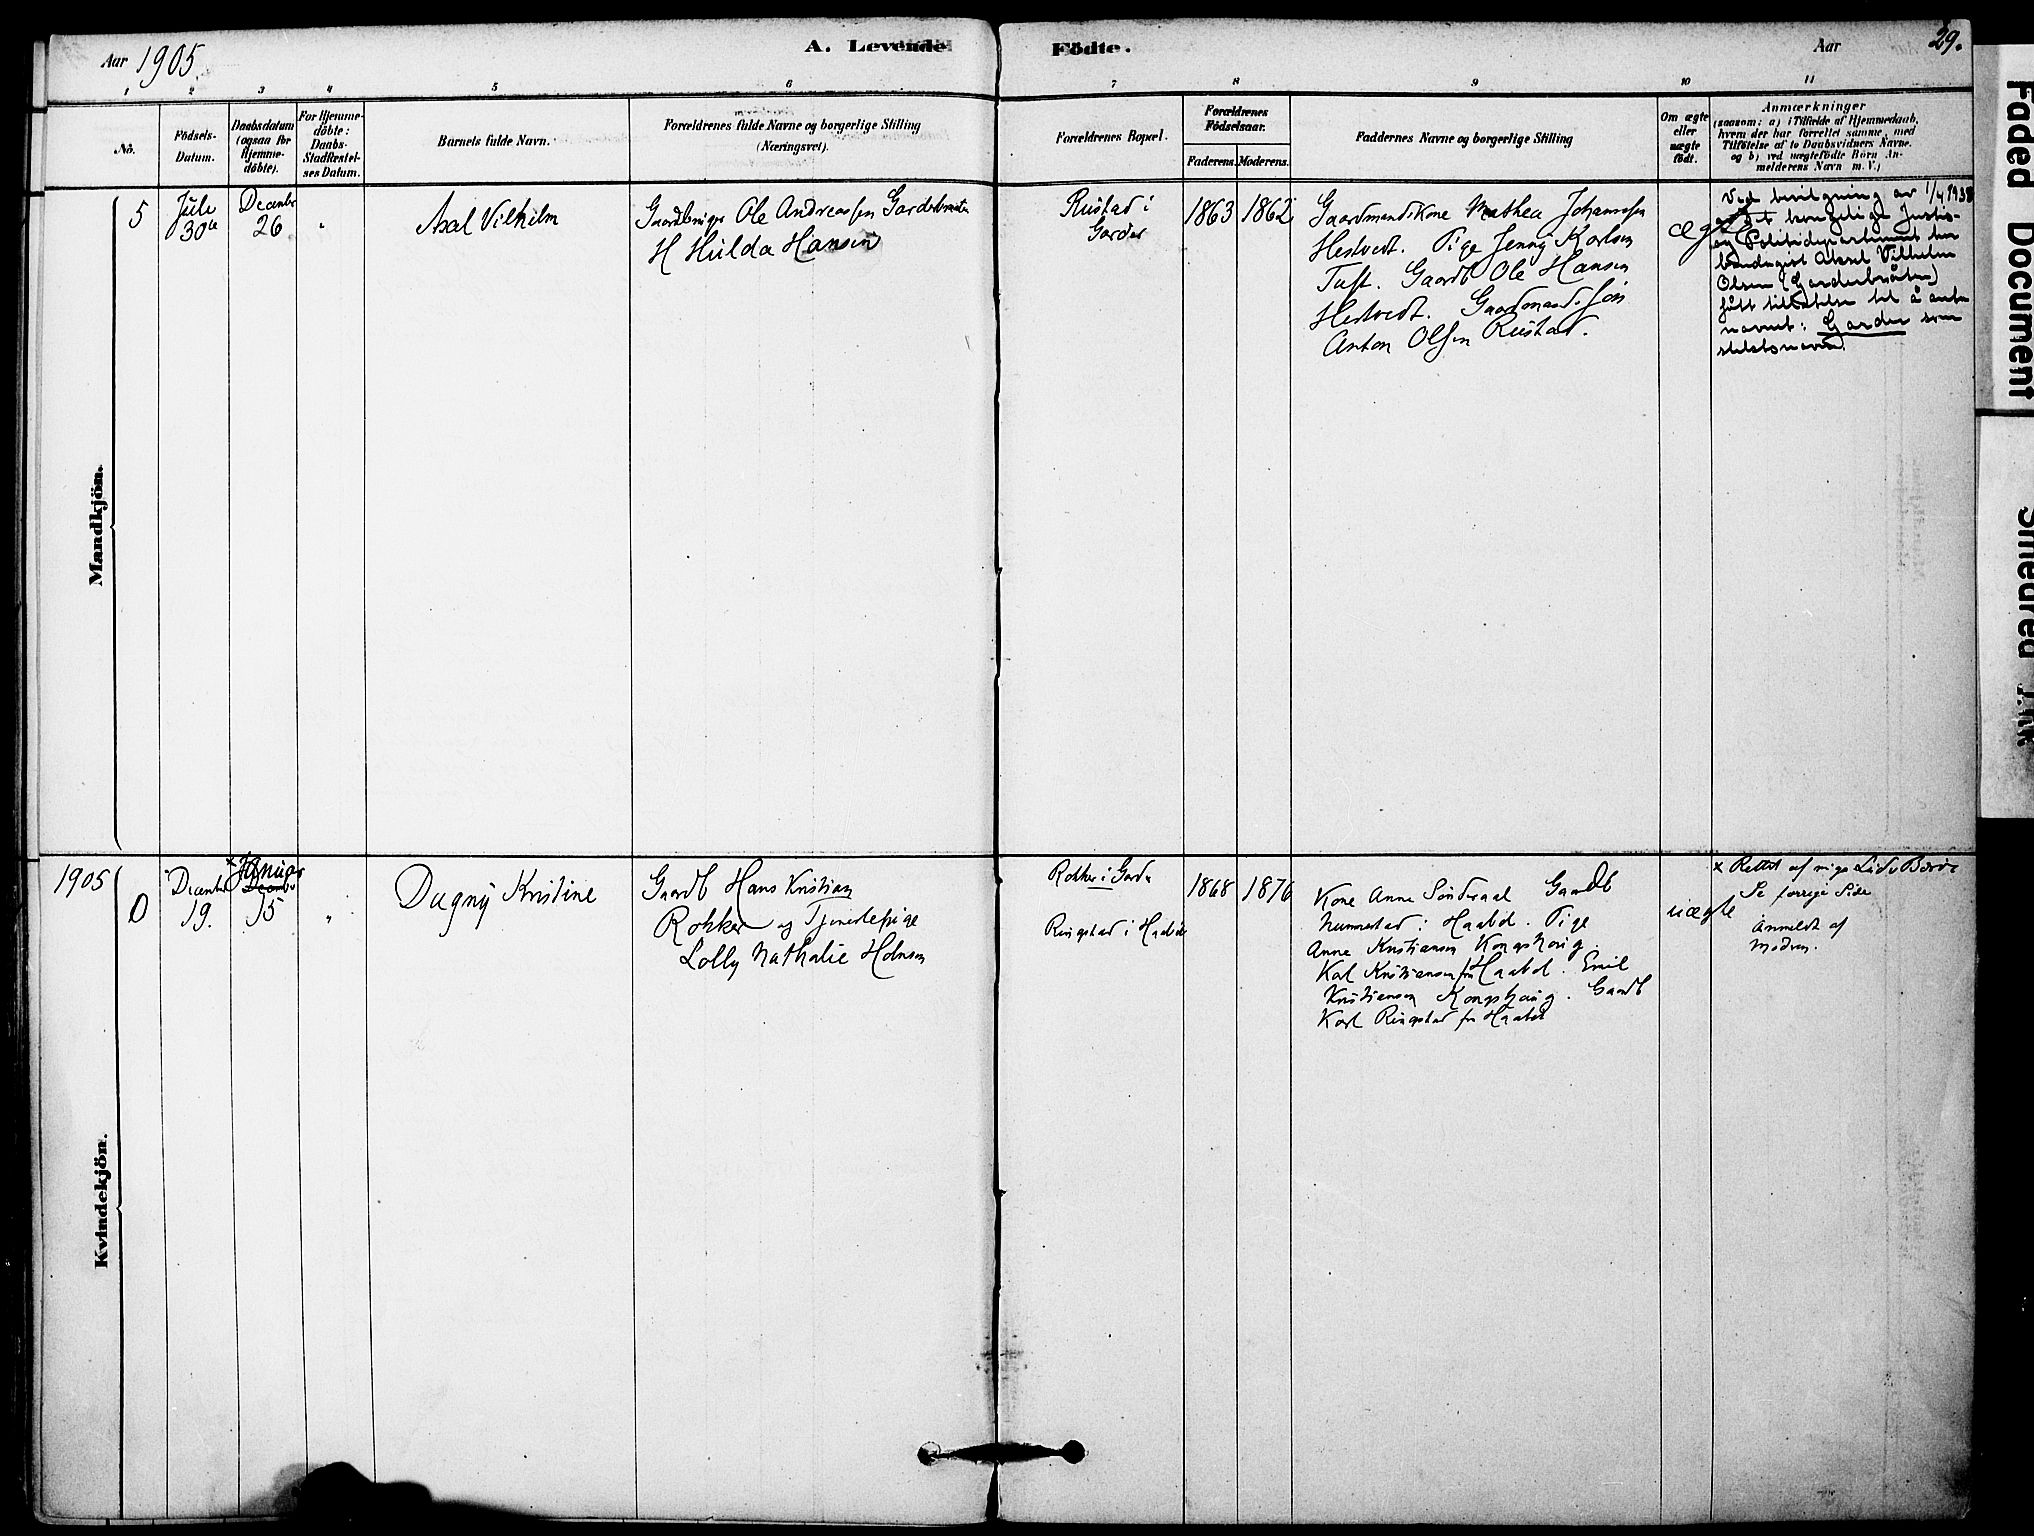 Aar 1905
A. Levende
Födte.
Aar
29.
1 2 3 4 5 6 7 8 9 10 11
No.
Födsels-
Datum.
Daabsdatum
(ogsaa for
Hjemme-
döbte).
For Hjemme-
döbte:
Daabs-
Stadfæstel-
ses Datum.
Barnets fulde Navn.
Forældrenes fulde Navne og borgerlige Stilling
(Næringsvei).
Forældrenes Bopæl.
Forældrenes
Födselsaar.
Faderens. Moderens.
Faddernes Navne og borgerlige Stilling
Om ægte
eller
uægte
födt.
Anmærkninger
(saasom: a) i Tilfælde af Hjemmedaab,
hvem der har forrettet samme, med
Tilföielse af to Daabsvidners Navne.
og b) ved uægtefödte Börn An-
melderens Navn m. V.)
Mandkjön.
5
Juli
30te
Decembr
26
"
Axel Vilhelm
Gaardbruger Ole Andreassen Garderbraaten
H Hulda Hansen
Rustad i
Garder
1863
1862
Gaardmandskone Mathea Johannesen
Hestvedt. Pige Jenny Karlsen
Tuft. Gaardb Ole Hansen
Hestvedt. Gaardmands Søn
Anton Olsen Rustad.
ægte
Ved bevilgning av 1/4 1938
av Det kongelige Justis-
og Politidepartement har
Aksel Vilhelm
Olsen (Garderbråten)
fått tillatelse til å anta
navnet: Garder som
slektsnavn.
1905
Kvindekjön.
0
Decembr
19.
x Januar
Decembr
15
"
Dagny Kristine
Gaardb Hans Kristian
Rokker og Tjenestepige
Lolly Nathalie Holmsen
Rokker i Garder
Ringstad i Haabøl
1868
1876
Kone Anne Sundraal Gaardb
Nummestad i Haabøl. Pige
Anne Kristiansen Kongshaug.
Karl Kristiansen fra Haabøl. Emil
Kristiansen Kongshaug. Gaardb
Karl Ringstad fra Haabøl
uægte
x Rettet af mig
Se forrige Side
Anmeldt af
Modren.
Faded Document
Smeared Ink